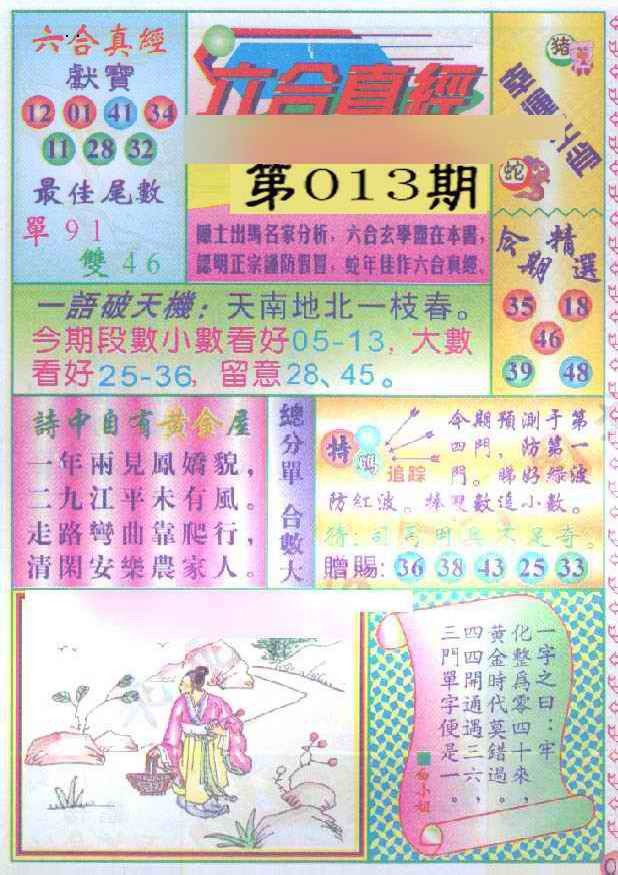 六合真經
獻寶
12 01 41 34
11 28 32
最佳尾數
單 9 1
雙 4 6
六合真經
第013期
隱士出馬名家分析，六合玄學盡在本書，
認明正宗謹防假冒，蛇年佳作六合真經。
豬
蛇
今期精選
35 18
46
39 48
一語破天機：天南地北一枝春。
今期段數小數看好05-13，大數
看好25-36，留意28、45。
詩中自有黃金屋
一年兩見鳳嬌貌，
二九江平未有風。
走路彎曲靠爬行，
清閑安樂農家人。
總分單 合數大
特碼追踪
今期預測于第
四門，防第一
門。睇好綠波
防紅波。捧雙數追小數。
贈賜：36 38 43 25 33
一字之曰：牢
化整為零四十來，
黃金時代莫錯過。
四四開通遇三六，
三門單字便是一。
白小姐